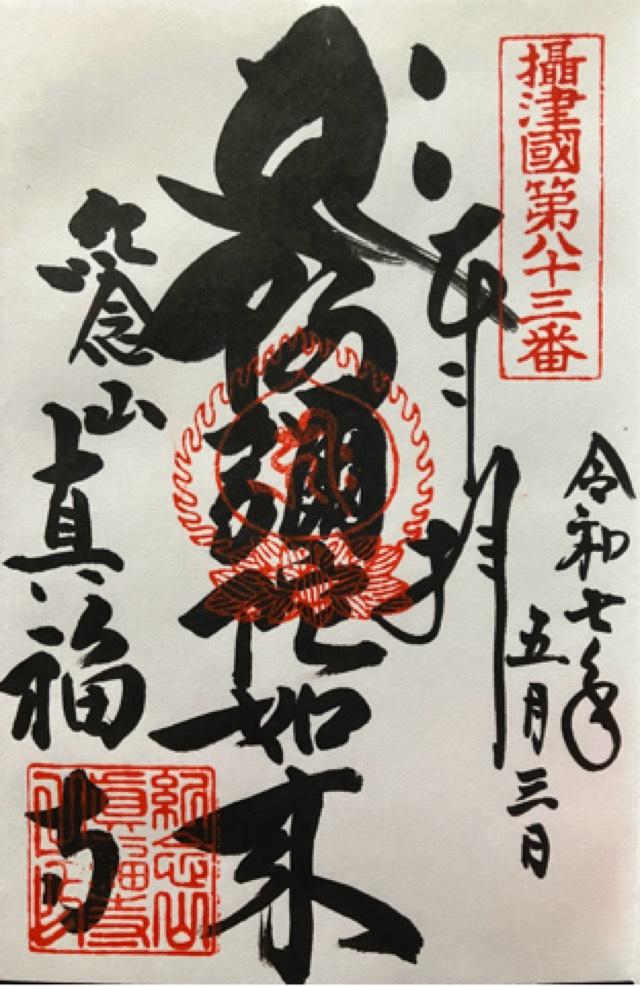 攝津國第八十三番
令和七年
五月三日
奉拝
阿彌陀如来
紀念山真福寺
紀念山
眞福寺